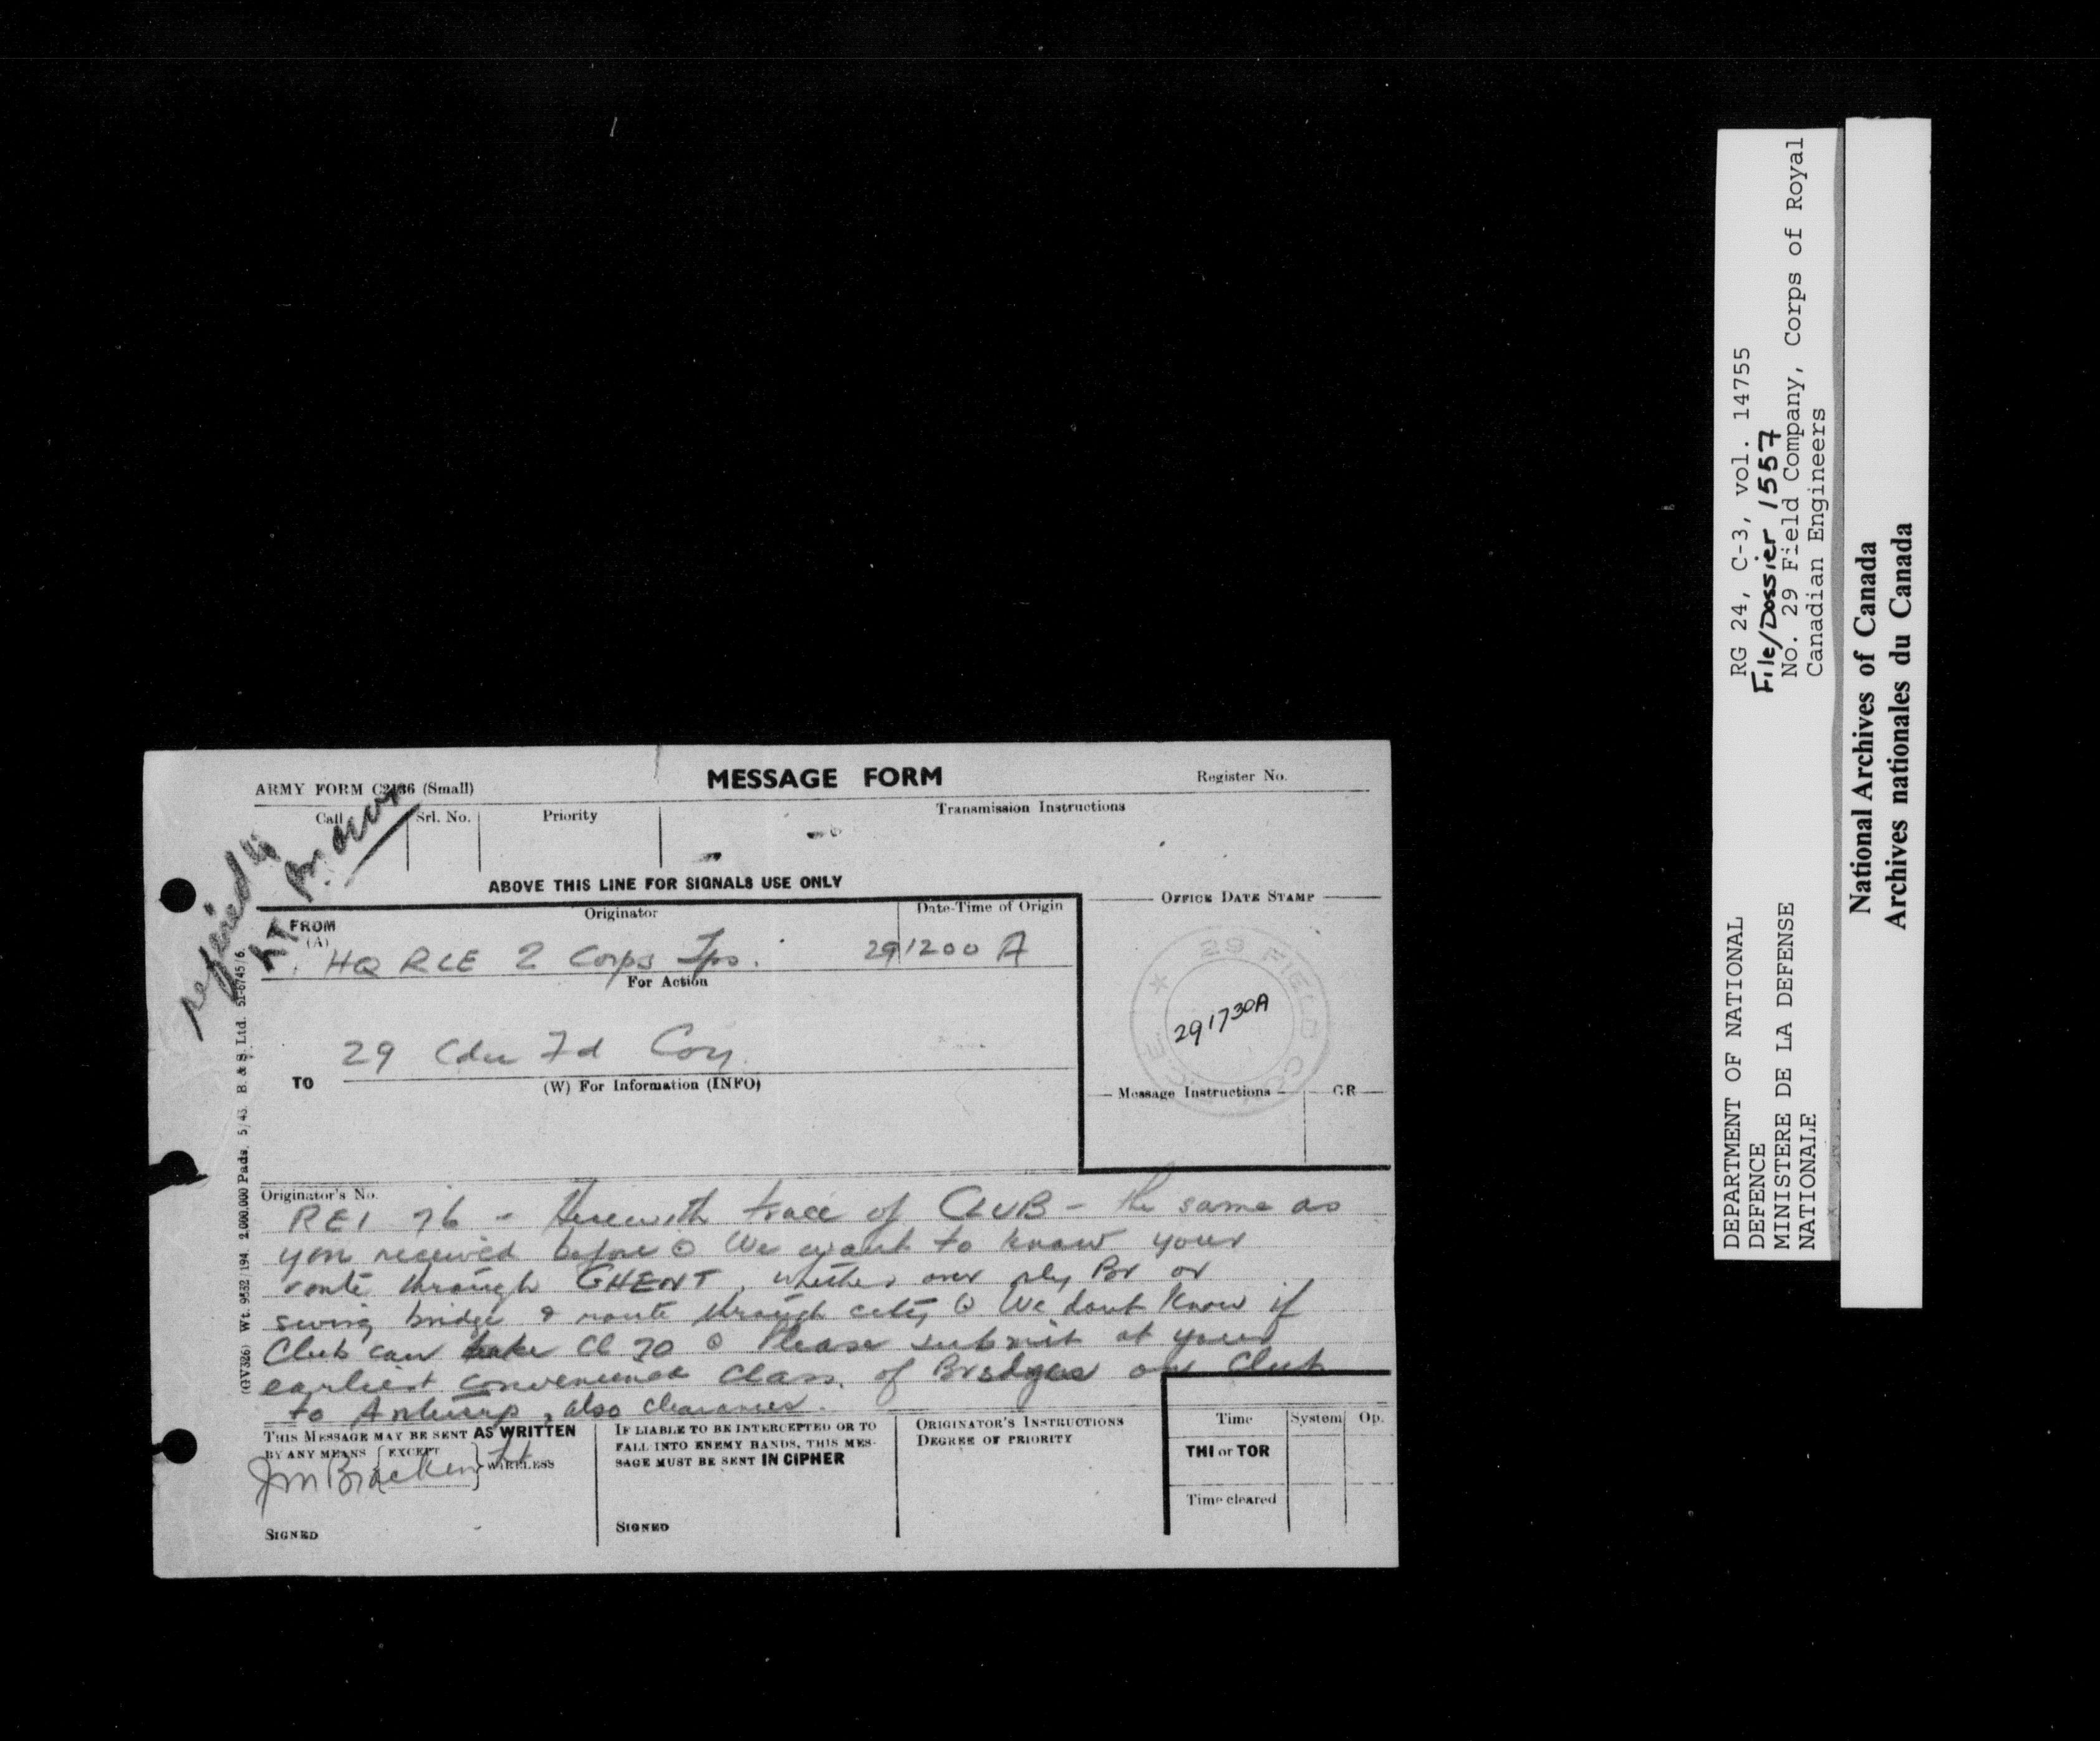 ARMY FORM C2136 (Small)
MESSAGE FORM
Register No.
Call
Srl. No.
Priority
Transmission Instructions
ABOVE THIS LINE FOR SIGNALS USE ONLY
referred to
Lt Brown
FROM
(A)
Originator
Date-Time of Origin
OFFICE DATE STAMP
HQ RCE 2 Corps Tps.
291200 A
For Action
29 FIELD CO
RCE
291730A
29 Cdn Fd Coy.
TO
(W) For Information (INFO)
Message Instructions
GR
Originator's No.
REI 76 - Herewith trace of CLUB - the same as
you received before o We want to know your
route through GHENT, whether over rly Br or
swing bridge & route through city o We dont know if
Club can take Cl 70 o Please submit at your
earliest convenience Class. of Bridges on Club
to Antwerp, also clearances.
THIS MESSAGE MAY BE SENT AS WRITTEN
BY ANY MEANS EXCEPT WIRELESS
JM Bracken Lt
SIGNED
IF LIABLE TO BE INTERCEPTED OR TO
FALL INTO ENEMY HANDS, THIS MES-
SAGE MUST BE SENT IN CIPHER
SIGNED
ORIGINATOR'S INSTRUCTIONS
DEGREE OF PRIORITY
Time
System
Op.
THI or TOR
Time cleared
(GV326) Wt. 9532/194. 2,000,000 Pads. 5/43. B. & S. Ltd. 51-6745/6.
RG 24, C-3, vol. 14755
File/Dossier 1557
No. 29 Field Company, Corps of Royal
Canadian Engineers
DEPARTMENT OF NATIONAL
DEFENCE
MINISTERE DE LA DEFENSE
NATIONALE
National Archives of Canada
Archives nationales du Canada